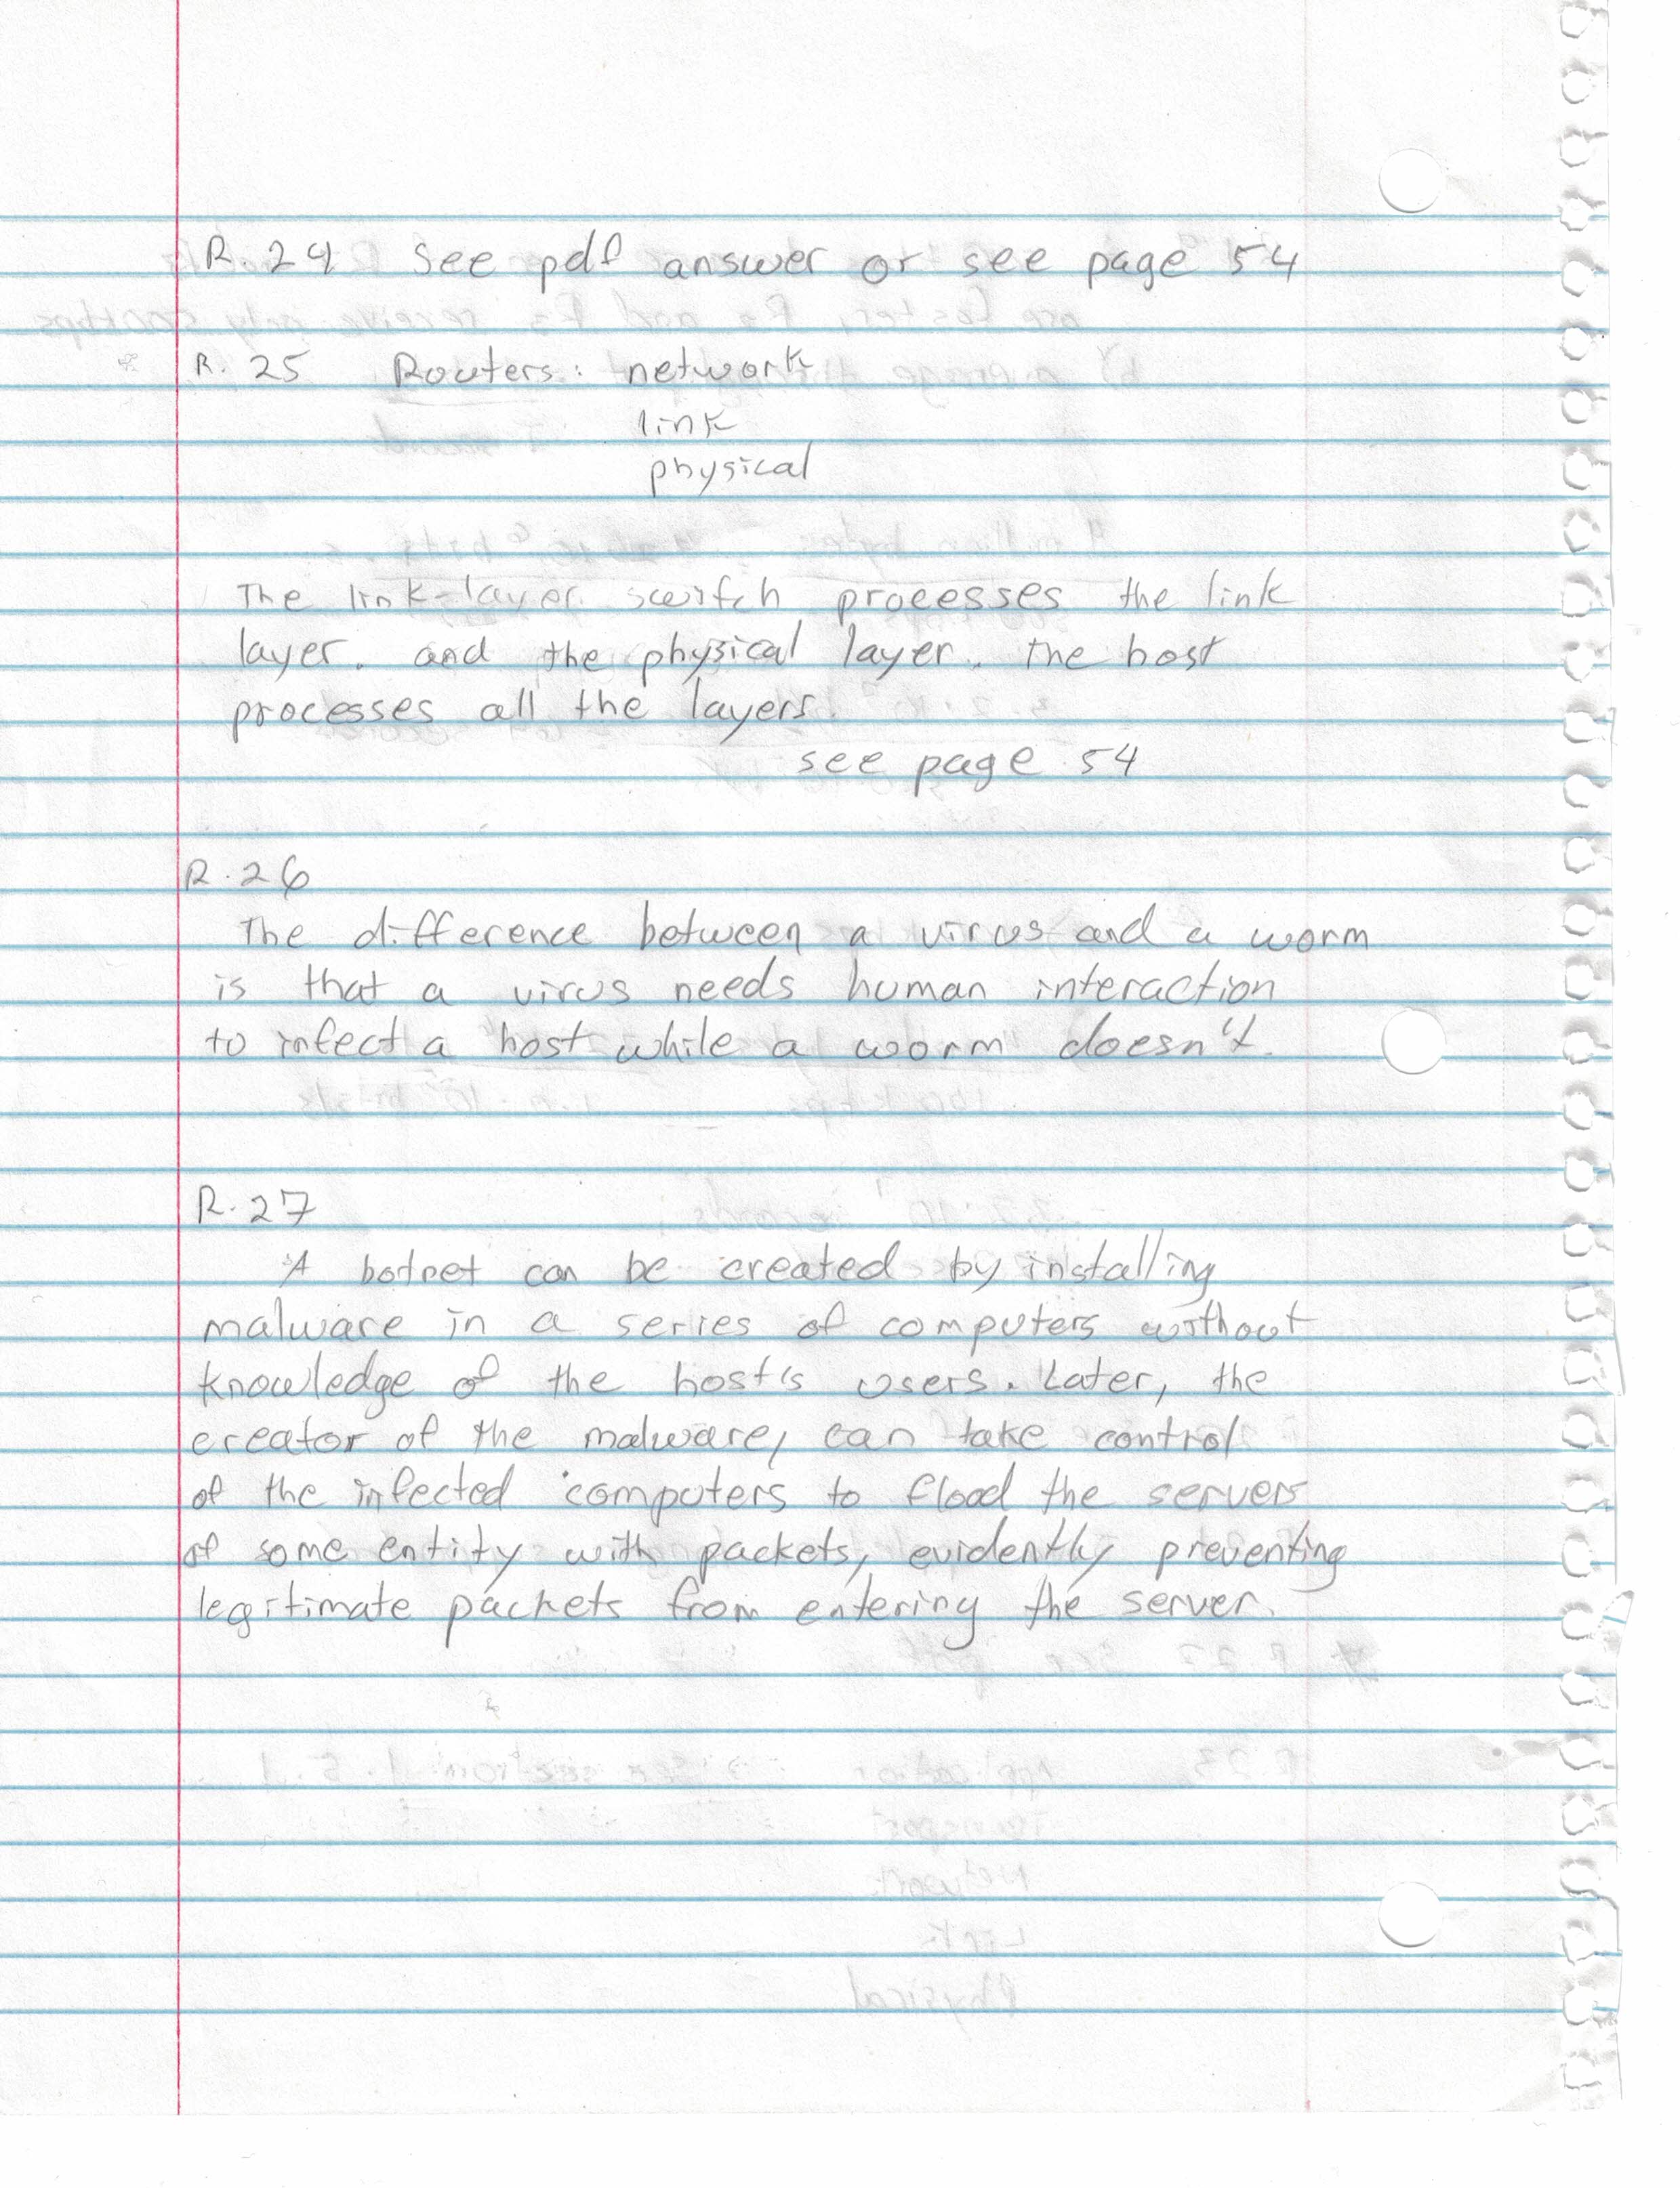 R. 24 See pdf answer or see page 54
R. 25 Routers: network
link
physical
The link-layer switch processes the link
layer. and the physical layer. The host
processes all the layers.
see page 54
R. 26
The difference between a virus and a worm
is that a virus needs human interaction
to infect a host while a worm doesn't.
R. 27
A botnet can be created by installing
malware in a series of computers without
knowledge of the host's users. Later, the
creator of the malware, can take control
of the infected computers to flood the servers
of some entity with packets, evidently preventing
legitimate packets from entering the server.